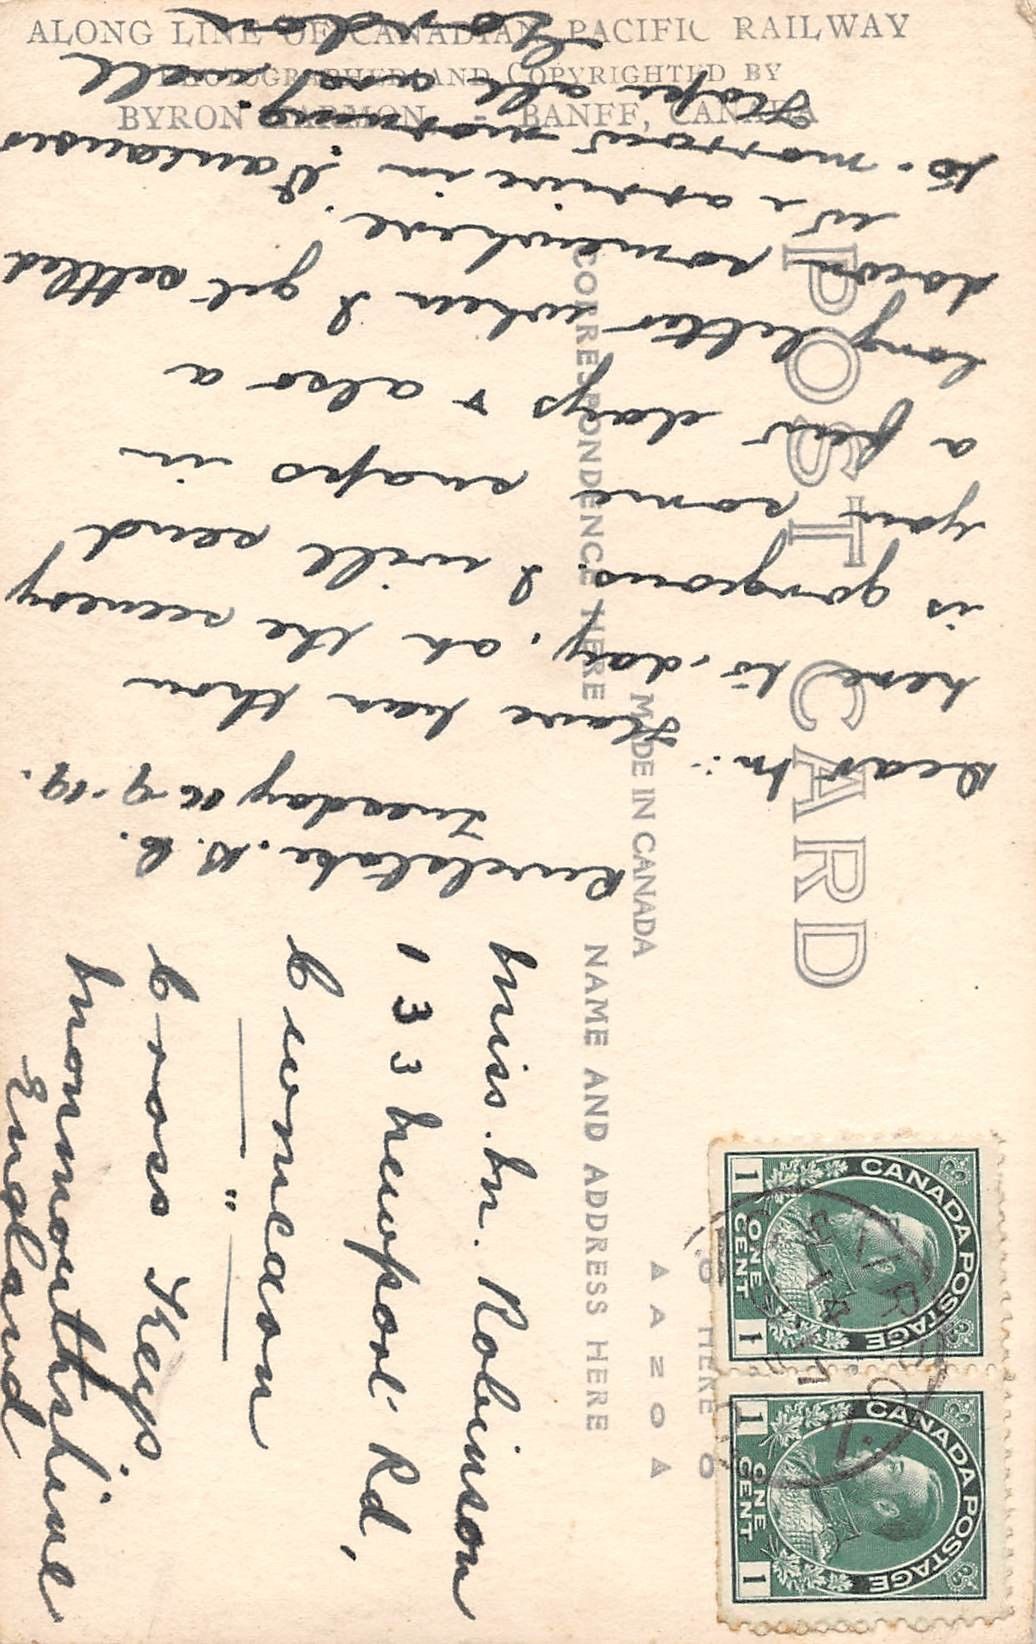 ALONG LINE OF CANADIAN PACIFIC RAILWAY
PHOTOGRAPHED AND COPYRIGHTED BY
BYRON HARMON - BANFF, CANADA
POST CARD
CORRESPONDENCE HERE
MADE IN CANADA
NAME AND ADDRESS HERE
Revelstoke. B. C.
Tuesday 16-9-19.
Dear M:-
Have han thou
here to-day, oh the scenery
is gorgeous. I will send
you some snaps in
a few days & also a
long letter when I get settled
down somewhere.
We arrive in Vancouver
to-morrow morning.
Hope all are well
Gordon
Miss. M. Robinson
133 Newport Rd,
Cwmcarn
" 
Cross Keys
Monmouthshire
England
CANADA POSTAGE
1 ONE CENT 1
CANADA POSTAGE
1 ONE CENT 1
HERE
AZOA